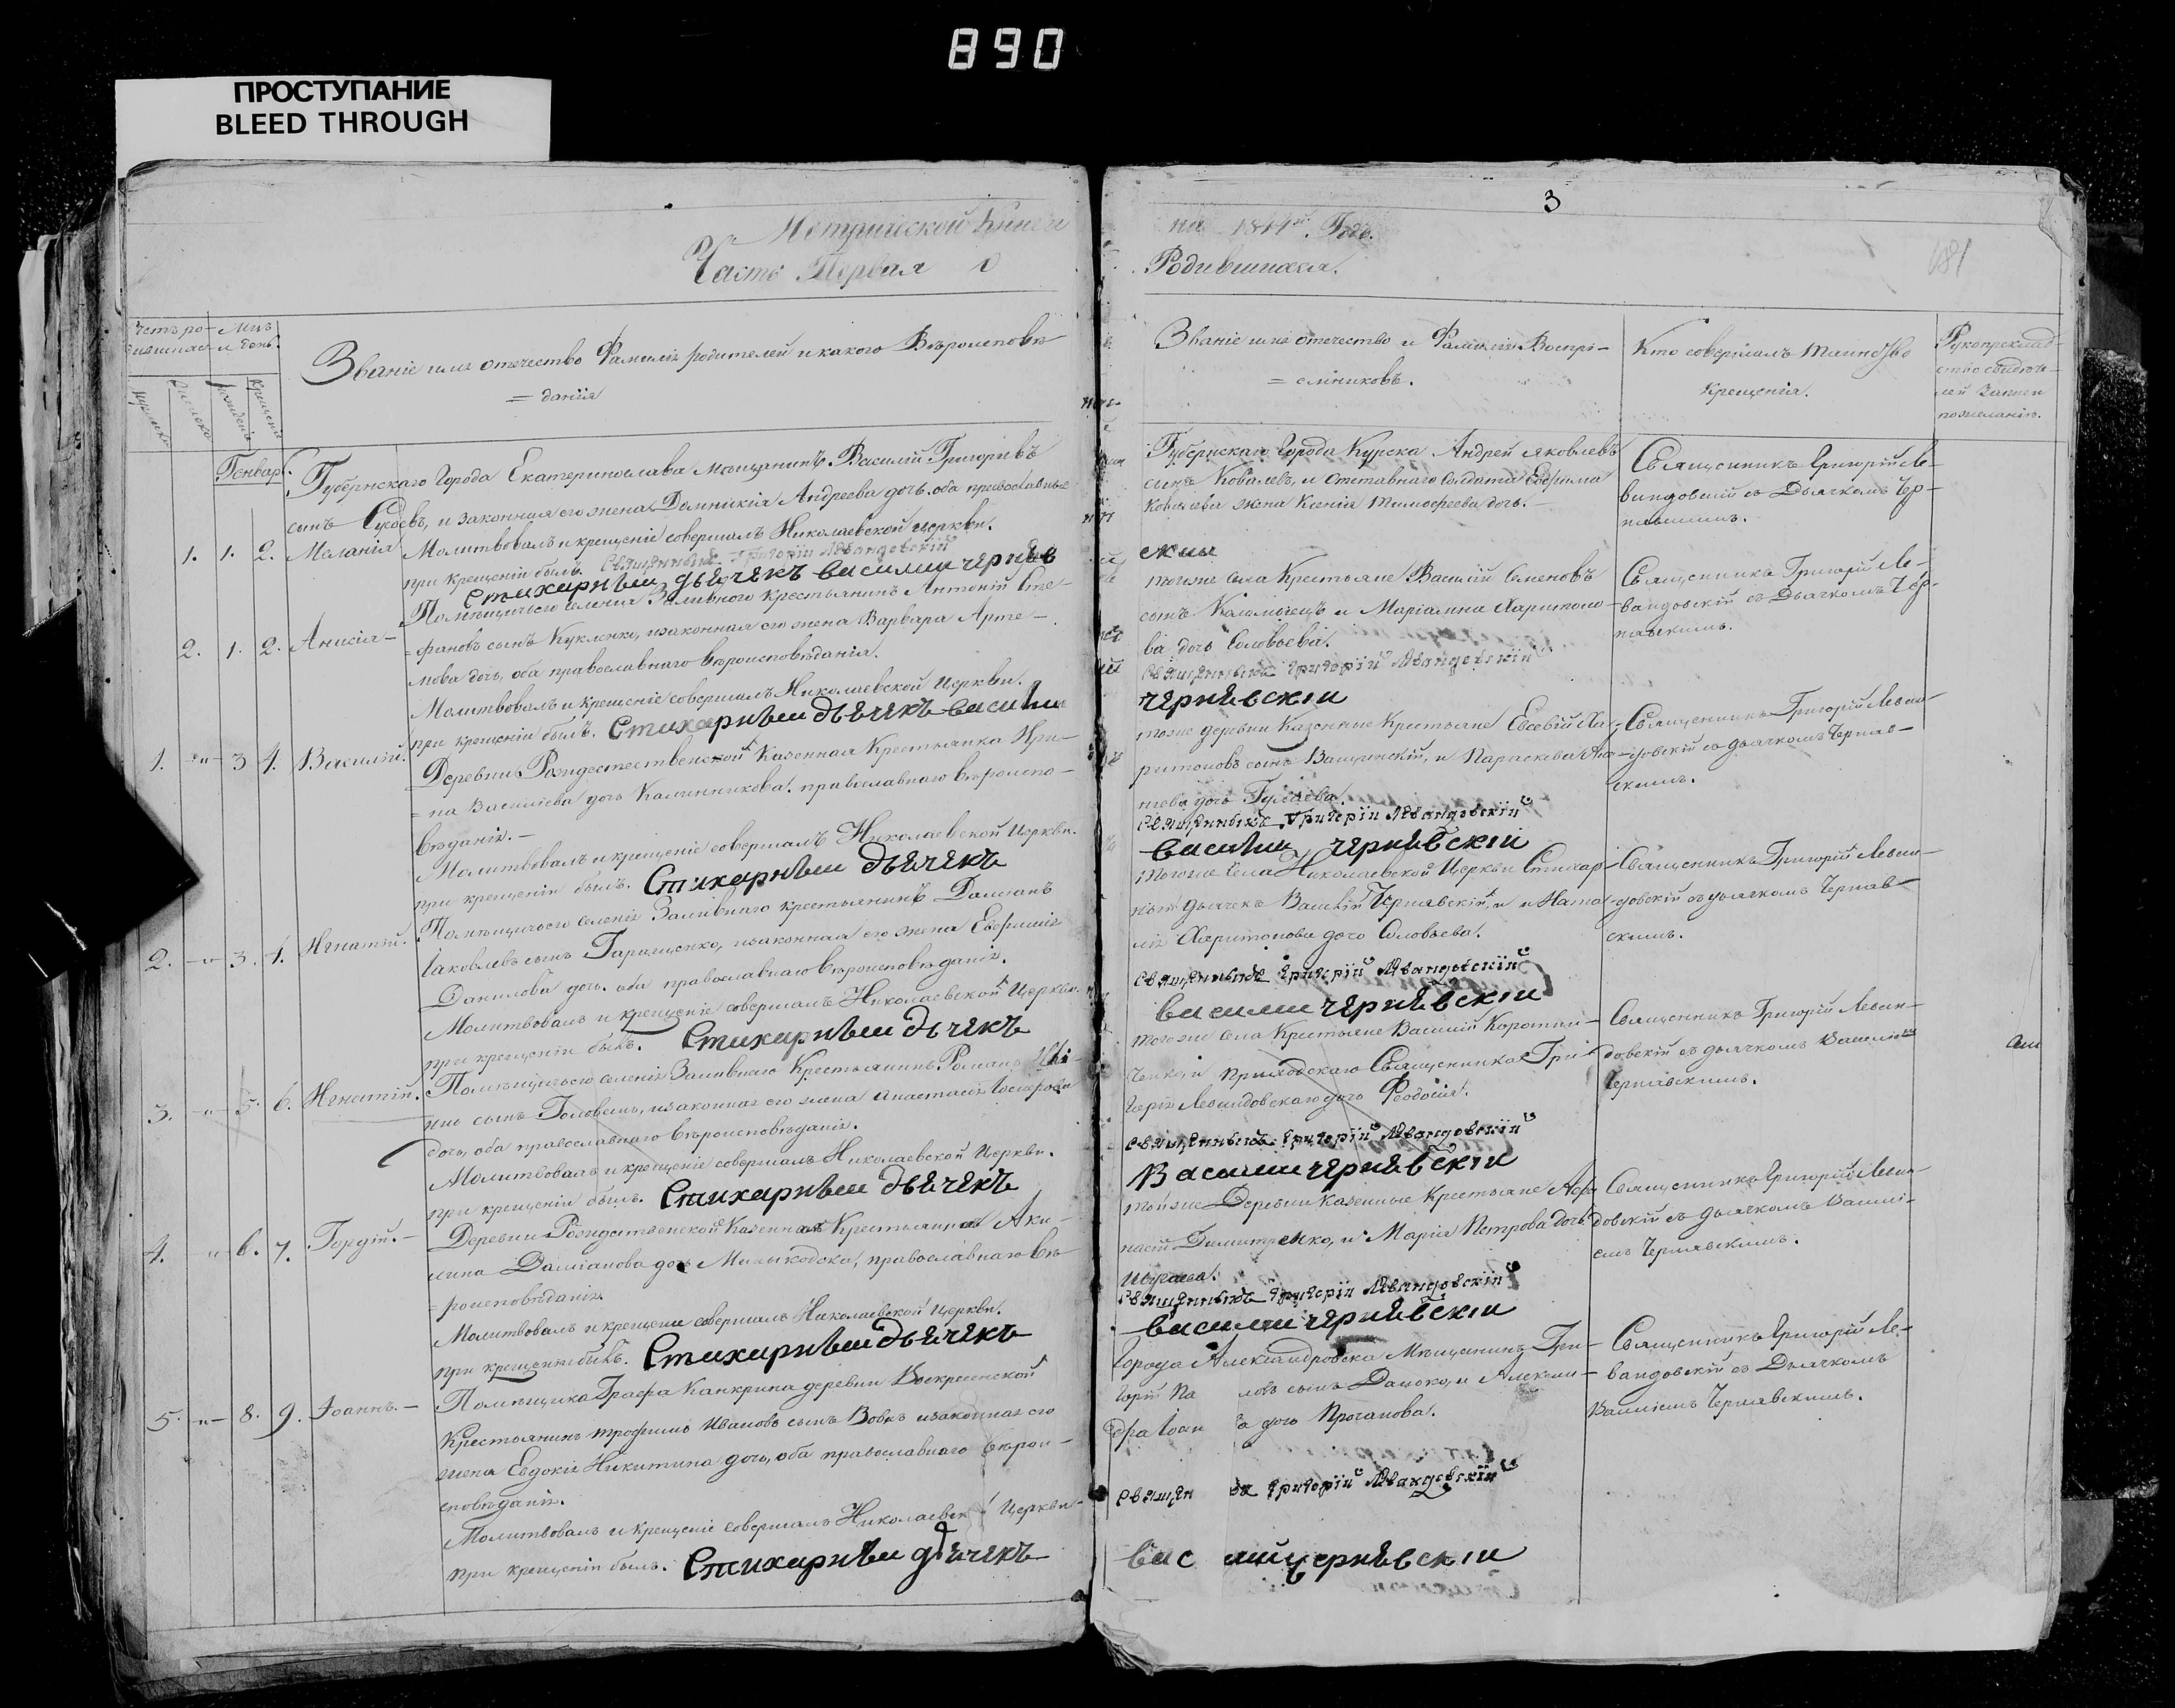 890
ПРОСТУПАНИЕ
BLEED THROUGH
3
Метрической Книги
на 1844й Годъ.
Часть Первая о
Родившихся.
681
Мцъ
и день.
Званіе имя отечество Фамилія родителей и какого Вѣроисповѣ
= данія
Званіе имя отечество и Фамилія Воспрі-
= емниковъ.
Кто совершалъ таинство
Крещенія.
Рукоприклад-
ство свидѣте-
лей записи
по желанію.
Генварь.
Губернскаго Города Екатеринослава Мѣщанинъ Василій Григорьевъ
сынъ Сусоевъ, и законная его жена Домникія Андреева дочь, оба православные
1. 1. 2. Маланія
Молитвовалъ и крещеніе совершалъ Николаевской церкви.
при крещеніи былъ. Священникъ Григорій Левандовскій
Стихарный дьячекъ василий черняв
Губернскаго Города Курска Андрей Яковлевъ
сынъ Ковалевъ, и отставнаго солдата Ефрима
Ковалева жена Ксенія Тимофеева дочь.-
ский
Священникъ Григорій Ле-
вандовскій съ Дьячкомъ Чер-
Помѣщичьяго селенія Заливного крестьянинъ Антоній Сте-
2. 1. 2. Анисія-
= фановъ сынъ Кукленко, и законная его жена Варвара Арте-
мова дочь, оба православнаго вѣроисповѣданія.
Молитвовалъ и крещеніе совершалъ Николаевской Церкви.
при крещеніи былъ. Стихарный дьячекъ василий
тогоже села Крестьяне Василій Семеновъ
сынъ Каламыецъ и Маріамна Харитоно-
ва дочь Соловьева.
Священникъ Григорій Левандовскій
чернявский
Священникъ Григорій Ле-
вандовскій съ Дьячкомъ Чер-
1. -"- 3 4. Василій.
Деревни Рождественской Казенная Крестьянка Ири-
= на Василіева дочь Калинникова, православнаго вѣроиспо-
вѣданія.-
Молитвовалъ и крещеніе совершалъ Николаевской Церкви.
при крещеніи былъ. Стихарный дьячекъ
тоже деревни Казенные Крестьяне Евсевій Ха-
ритоновъ сынъ Ващинскій, и Параскева
дочь Гулаева.
Священникъ Григорій Левандовскій
василий чернявский
Священникъ Григорій Леван-
довскій съ дьячкомъ Черняв-
скимъ.
Помѣщичьяго селенія Заливнаго крестьянинъ Даміанъ
2. -"- 3. 4. Игнатій.
Іаковлевъ сынъ Гаращенко, и законная его жена Евфимія
Данилова дочь, оба православнаго вѣроисповѣданія.
Молитвовалъ и крещеніе совершалъ Николаевской Церкви.
при крещеніи былъ. Стихарный дьячекъ
тогоже села Николаевской Церкви Стихар-
ный дьячекъ Василій Чернявскій, и Ната-
лія Харитонова дочь Соловьева.
Священникъ Григорій Левандовскій
василий чернявский
Священникъ Григорій Леван-
довскій съ дьячкомъ Черняв-
скимъ.
3. -"- 5. 6. Игнатій.
Помѣщичьяго селенія Заливнаго Крестьянинъ Романъ
сынъ Головень, и законная его жена Анастасія
дочь, оба православнаго вѣроисповѣданія.
Молитвовалъ и крещеніе совершалъ Николаевской Церкви.
при крещеніи былъ. Стихарный дьячекъ
тогоже села Крестьяне Василій Коротни-
ченко, и приходскаго Священника Гри-
горія Левандовскаго дочь Феодосія.
Священникъ Григорій Левандовскій
Василий чернявский
Священникъ Григорій Леван-
довскій съ дьячкомъ Василіемъ
Чернявскимъ.
4. -"- 6. 7. Гордій.-
Деревни Рождественской Казенная Крестьянка Аки-
лина Даміанова дочь, православнаго вѣ-
= роисповѣданія.
Молитвовалъ и крещеніе совершалъ Николаевской церкви.
при крещеніи былъ. Стихарный дьячекъ
тойже Деревни Казенные Крестьяне
Димитренко, и Марія Петрова дочь
Священникъ Григорій Левандовскій
василий чернявский
Священникъ Григорій Леван-
довскій съ дьячкомъ Василі-
емъ Чернявскимъ.
5. -"- 8. 9. Іоаннъ.-
Помѣщика Графа Канкрина деревни Воскресенской
Крестьянинъ Трофимъ Ивановъ сынъ Вовкъ и законная его
жена Евдокія Никитина дочь, оба православнаго вѣрои-
сповѣданія.
Молитвовалъ и крещеніе совершалъ Николаевск й Церкви
при крещеніи былъ. Стихарный дьячекъ
Города Александровска Мѣщанинъ Гри-
горій Па ловъ сынъ Данько, и Алексан-
дра Іоан а дочь Проганова.
Священ ъ Григорій Левандовскій
вас лий чернявский
Священникъ Григорій Ле-
вандовскій съ Дьячкомъ
Василіемъ Чернявскимъ.